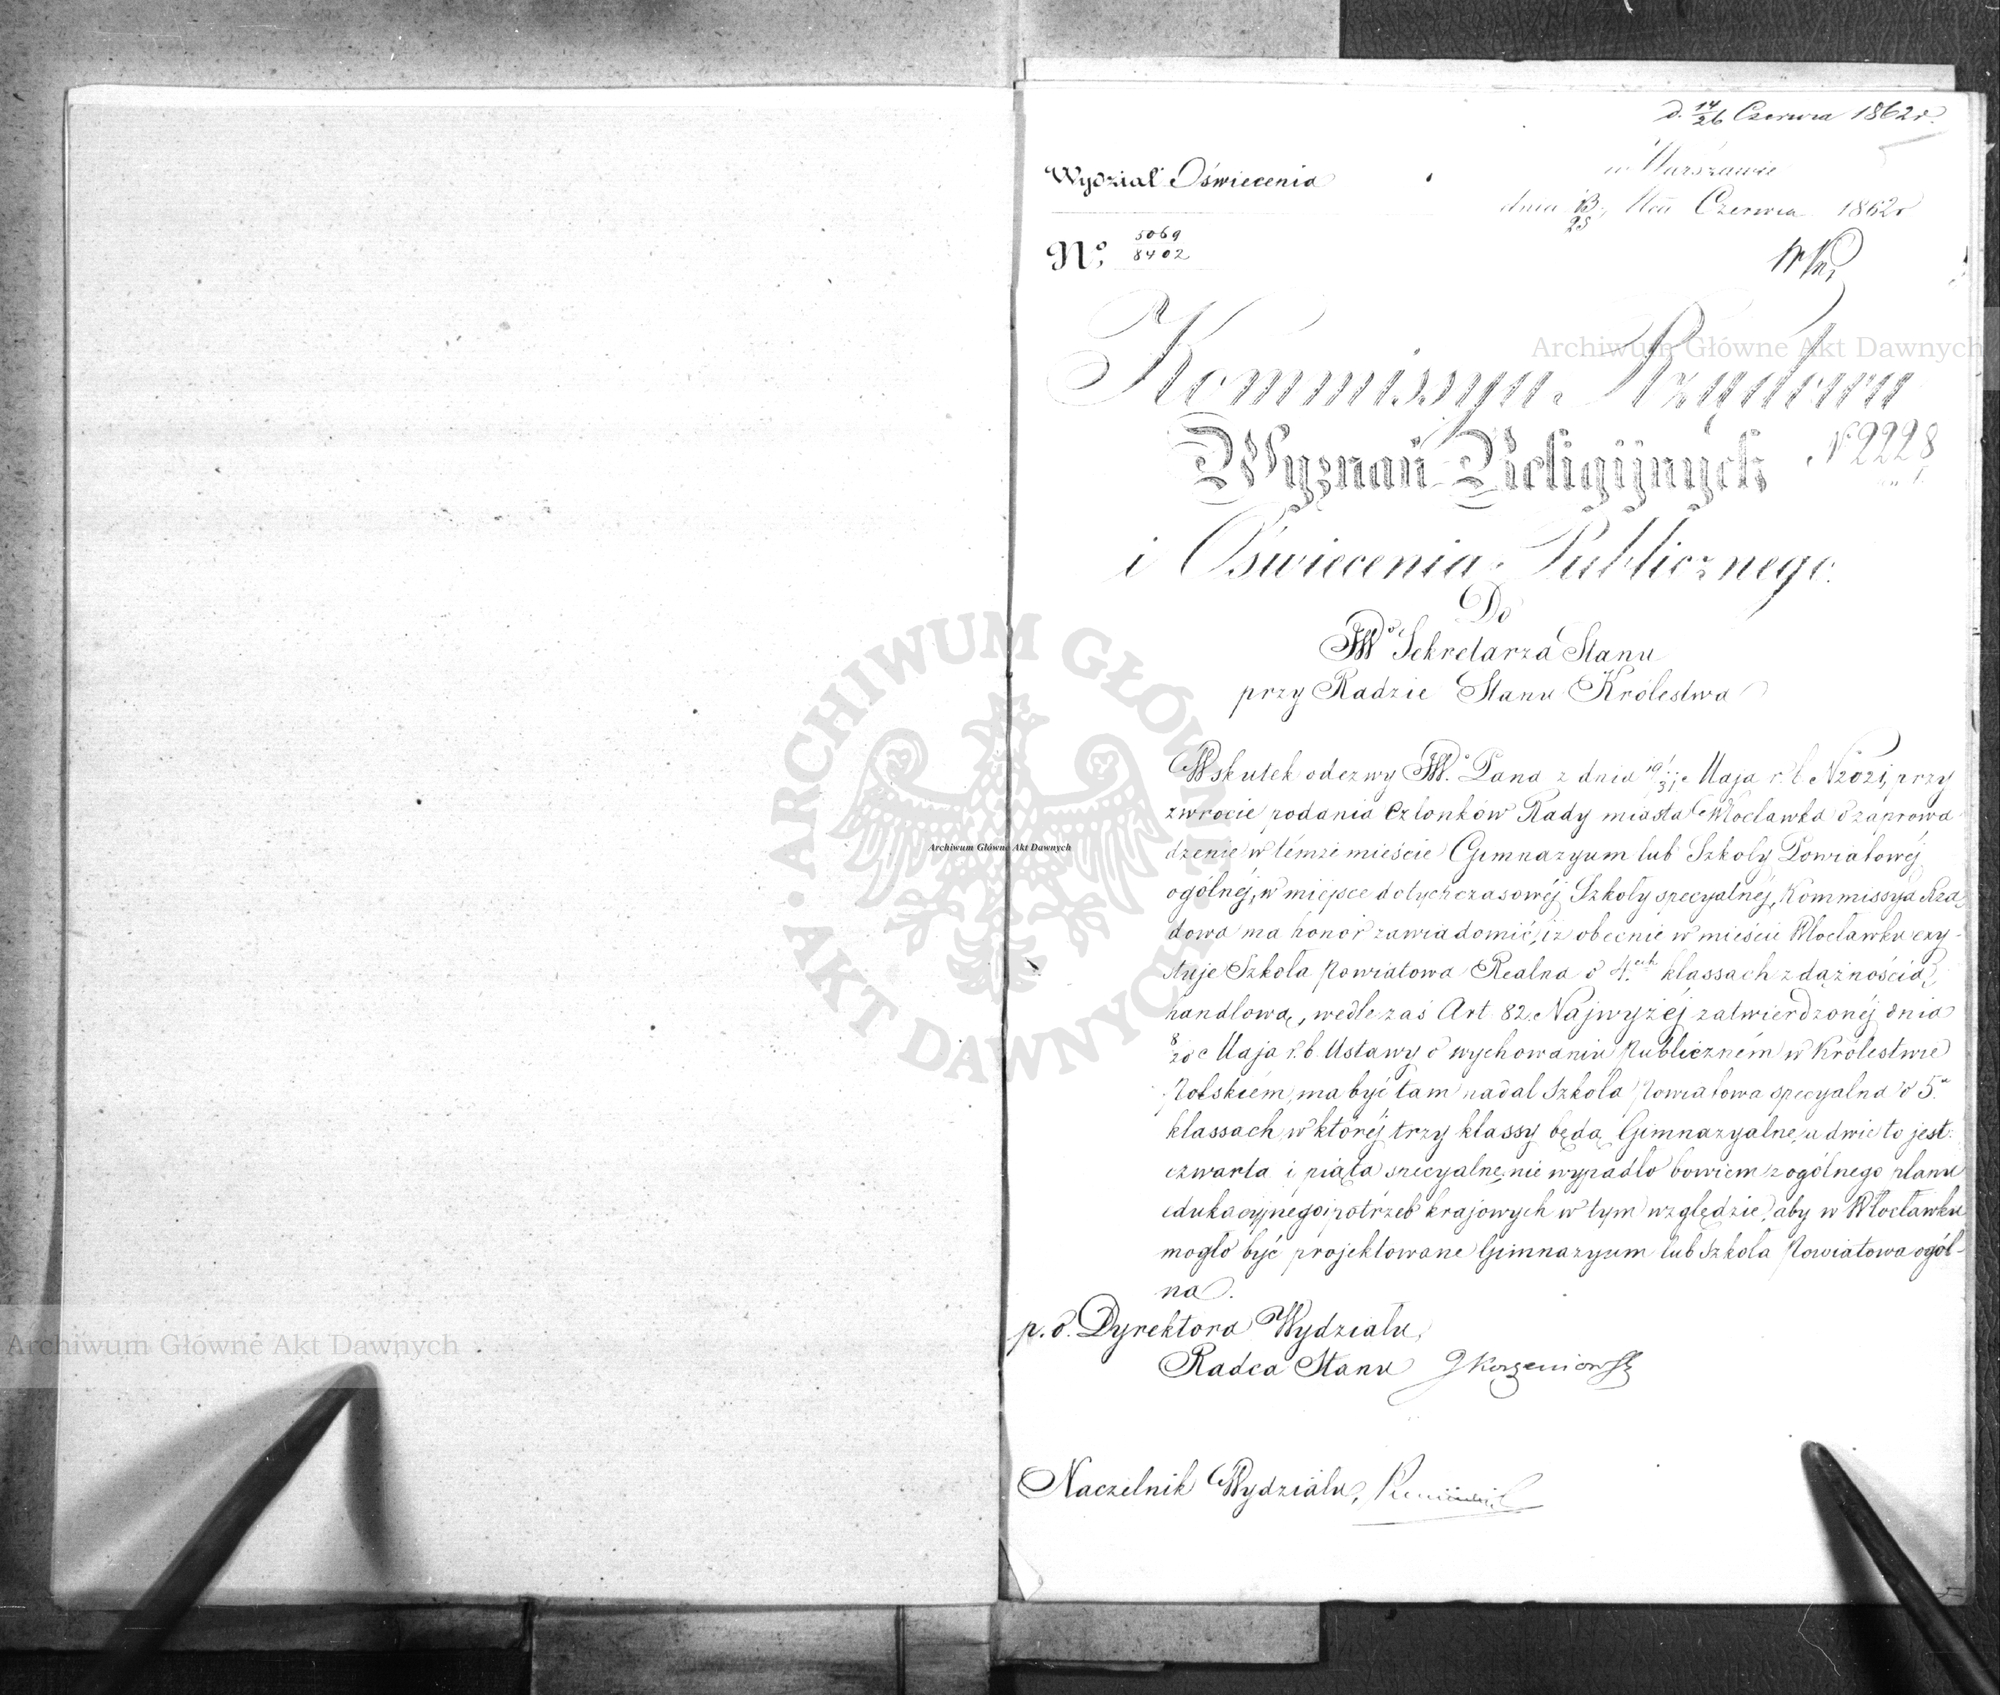 d. 14/26 Czerwca 1862 r.
w Warszawie
Wydział Oświecenia
dnia 13/25 Mca Czerwca 1862 r
No, 5069
8402
Kommissya Rządowa
Wyznań Religijnych
N 2228
i Oświecenia Publicznego.
Do
JWo Sekretarza Stanu
przy Radzie Stanu Królestwa
Wskutek odezwy JWo Pana z dnia 19/31 Maja r. b. przy
zwrocie podania Członków Rady miasta Włocławka o zaprowa
dzenie w témże mieście Gimnazyum lub Szkoły Powiatowéj
ogólnéj, w miejsce dotychczasowéj Szkoły specyalnéj, Kommissya Rzą
dowa ma honor zawiadomić, iż obecnie w mieście Włocławku exy-
stuje Szkoła Powiatowa Realna o 4.ech klassach z dążnością
handlową, wedle zaś Art 82. Najwyżéj zatwierdzonéj dnia
8/20 Maja r. b. Ustawy o wychowaniu Publiczném w Królestwie
Polskiém, ma być tam nadal Szkoła Powiatowa specyalna o 5u
klassach, w któréj trzy klassy będą Gimnazyalne, a dwie to jest:
czwarta i piąta specyalne, nie wypadło bowiem z ogólnego planu
edukacyjnego i potrzeb krajowych w tym względzie, aby w Włocławku
mogło być projektowane Gimnazyum lub Szkoła Powiatowa ogól-
na.
p. o. Dyrektora Wydziału,
Radca Stanu J Korzeniowski
Naczelnik Wydziału,
Archiwum Główne Akt Dawnych
ARCHIWUM GŁÓWNE AKT DAWNYCH
Archiwum Główne Akt Dawnych
Archiwum Główne Akt Dawnych